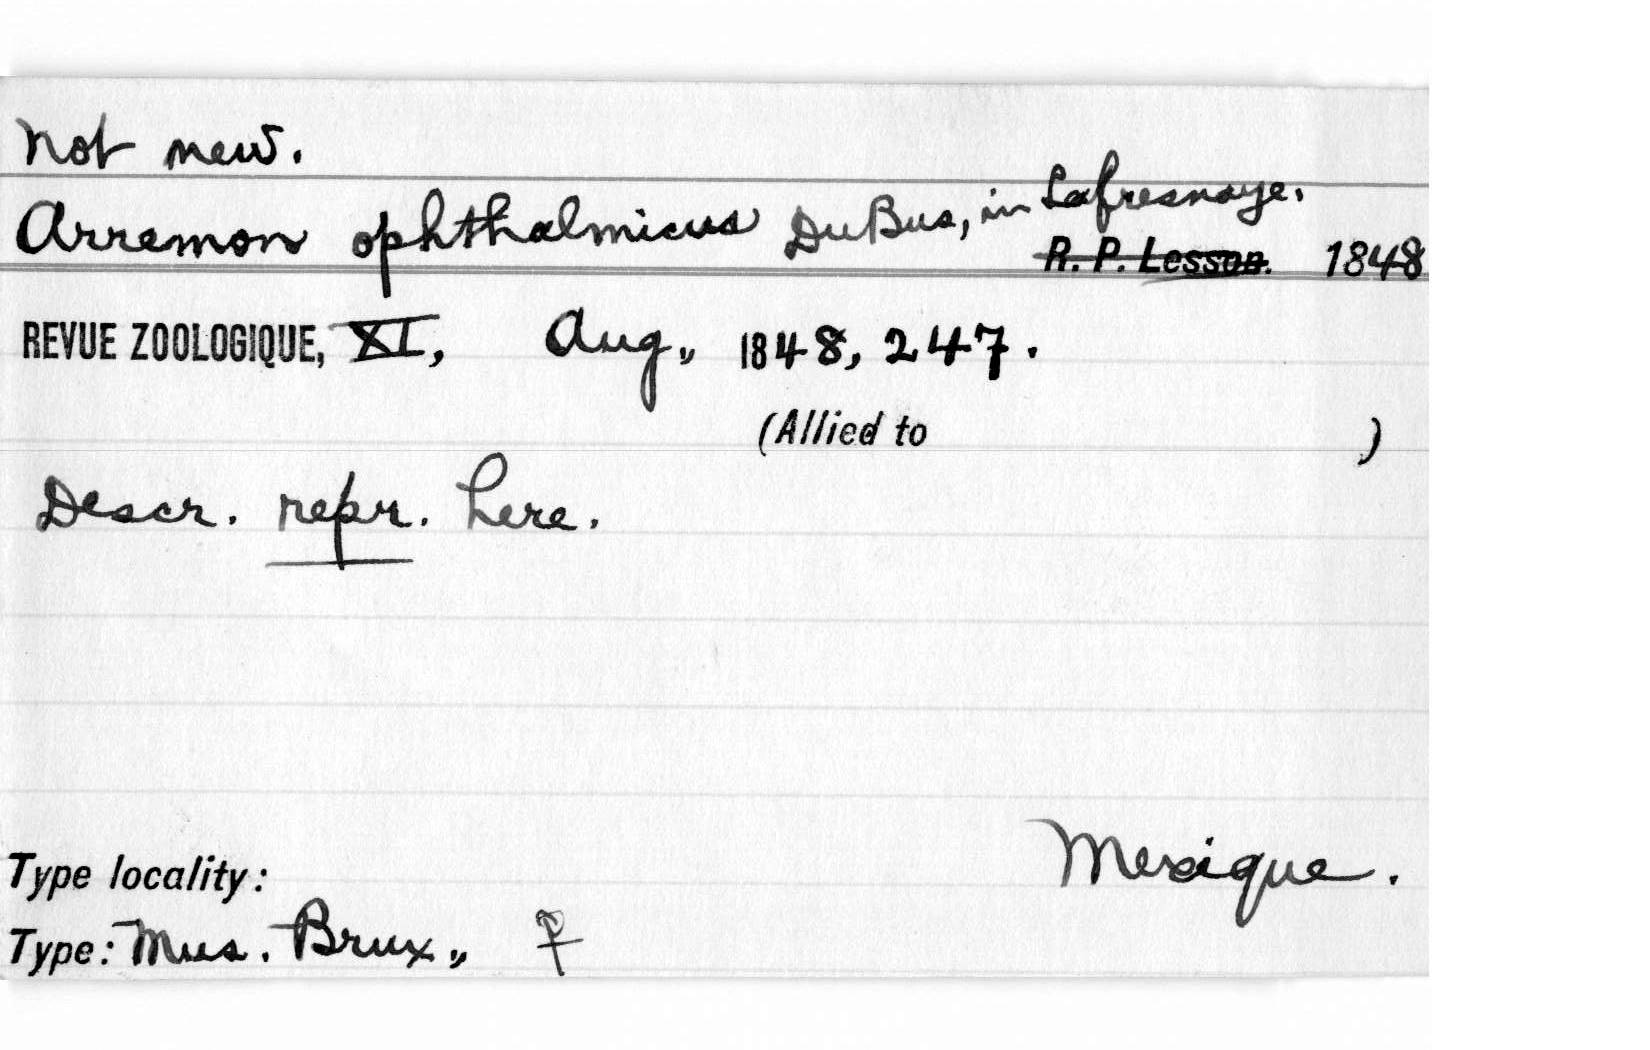 Not new.
Arremon ophthalmicus DuBus, in Lafresnaye.
R. P. Lesson. 1848
REVUE ZOOLOGIQUE, XI, Aug., 1848, 247.
(Allied to )
Descr. repr. here.
Type locality: Mexique.
Type: Mus. Brux., ♀